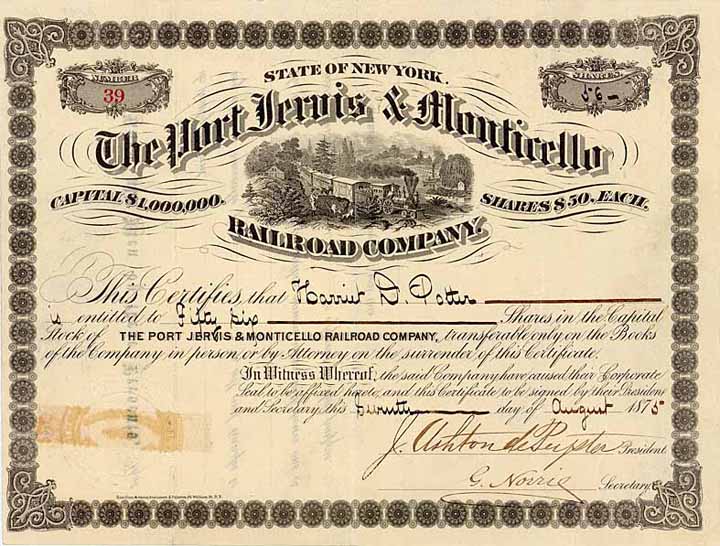 STATE OF NEW YORK.
NUMBER
39
SHARES
56
The Port Jervis & Monticello
CAPITAL $1,000,000.
SHARES $50, EACH.
RAILROAD COMPANY.
This Certifies, that Harriet D. Potter
is entitled to Fifty six Shares in the Capital
Stock of THE PORT JERVIS & MONTICELLO RAILROAD COMPANY, transferable only on the Books
of the Company in person or by Attorney on the surrender of this Certificate.
In Witness Whereof, the said Company have caused their Corporate
Seal to be affixed hereto, and this Certificate to be signed by their President
and Secretary, this Seventh day of August 1875
J. Ashton de Peyster President
G. Norrie Secretary